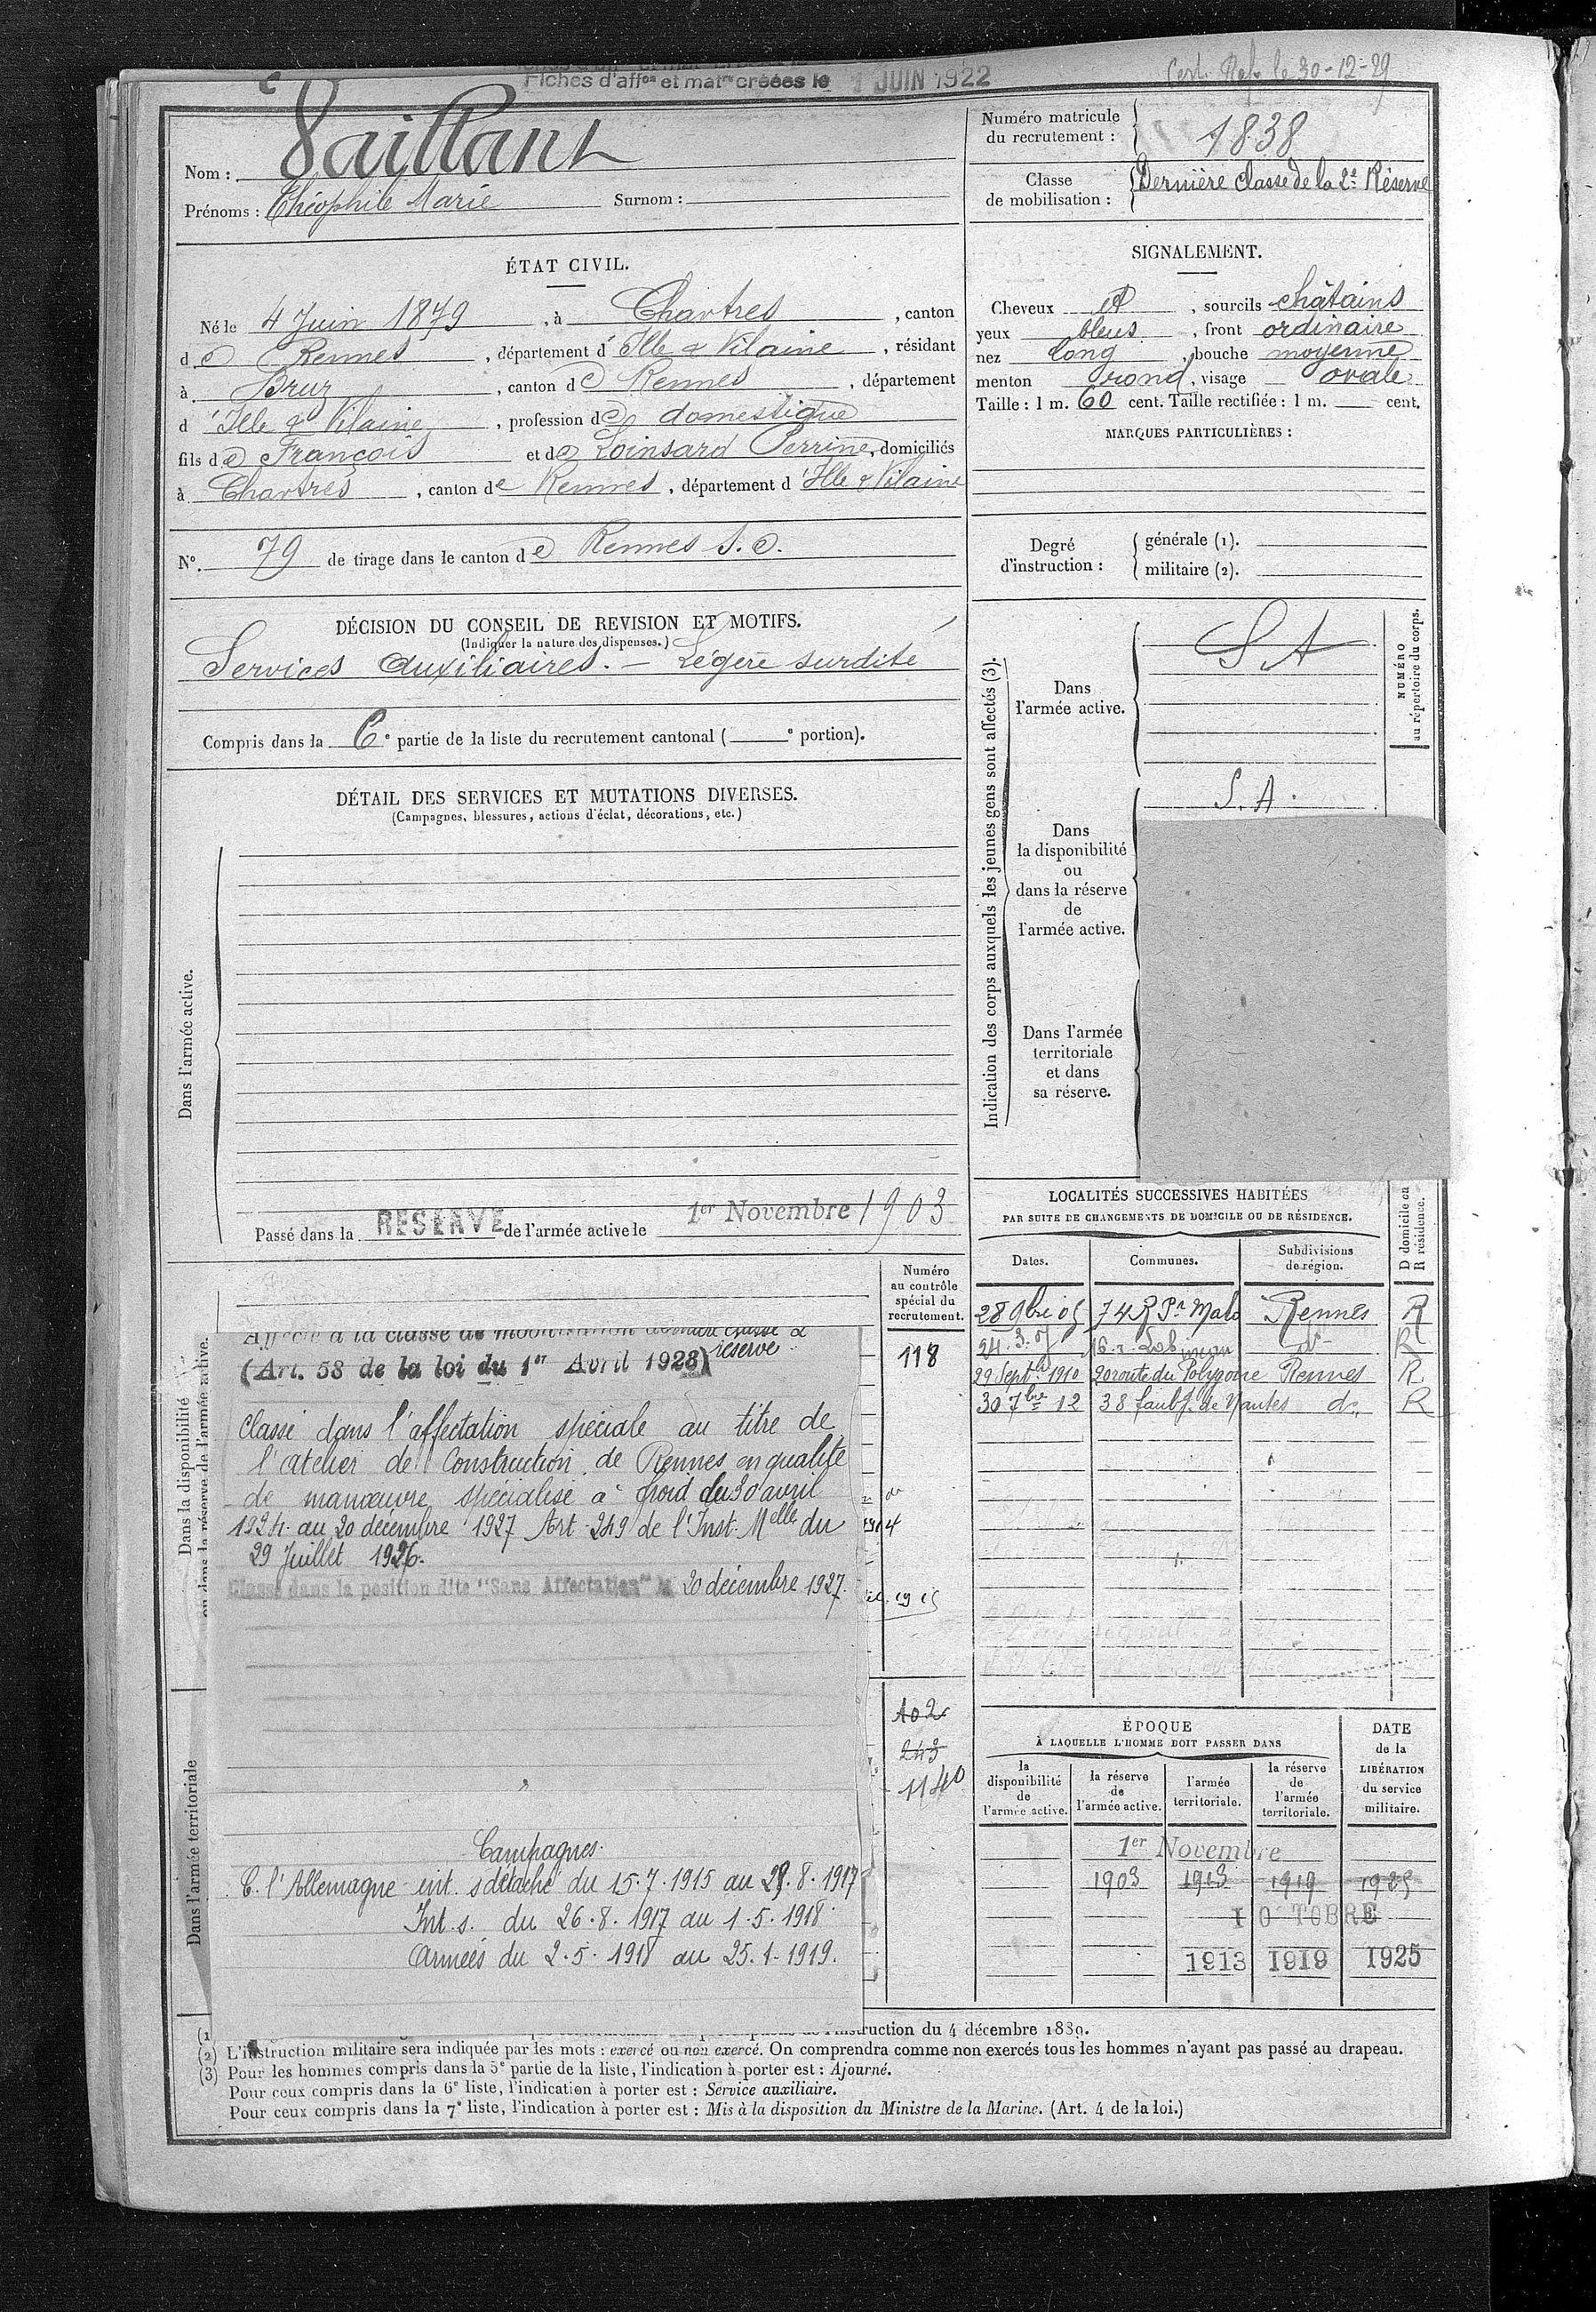 Fiches d'affon et matre créées le 1 JUIN 1922
le 30-12-29
Nom : Vaillant
Prénoms : Théophile Marie Surnom :
Numéro matricule du recrutement : 1838
Classe de mobilisation : Dernière classe de la 2e Réserve
ÉTAT CIVIL.
Né le 4 Juin 1879, à Chartres, canton
de Rennes, département d'Ille & Vilaine, résidant
à Bruz, canton de Rennes, département
d'Ille & Vilaine, profession de domestique
fils de François et de Loinsard Perrine, domiciliés
à Chartres, canton de Rennes, département d'Ille & Vilaine
N° 79 de tirage dans le canton de Rennes S.O.
SIGNALEMENT.
Cheveux et, sourcils châtains
yeux bleus, front ordinaire
nez long, bouche moyenne
menton rond, visage ovale
Taille : 1 m. 60 cent. Taille rectifiée : 1 m. cent.
MARQUES PARTICULIÈRES :
Degré d'instruction :
générale (1).
militaire (2).
DÉCISION DU CONSEIL DE REVISION ET MOTIFS.
(Indiquer la nature des dispenses.)
Services auxiliaires. – Légère surdité
Compris dans la 6e partie de la liste du recrutement cantonal ( e portion).
DÉTAIL DES SERVICES ET MUTATIONS DIVERSES.
(Campagnes, blessures, actions d'éclat, décorations, etc.)
Dans l'armée active.
Passé dans la RESERVE de l'armée active le 1er Novembre 1903
Indication des corps auxquels les jeunes gens sont affectés (3).
Dans l'armée active.
S A
NUMÉRO au répertoire du corps.
Dans la disponibilité ou dans la réserve de l'armée active.
S. A.
Dans l'armée territoriale et dans sa réserve.
Numéro au contrôle spécial du recrutement.
118
Dans la disponibilité ou dans la réserve de l'armée active.
Affecté à la classe de mobilisation dernière classe 2e réserve
(Art. 58 de la loi du 1er Avril 1928)
Classé dans l'affectation spéciale au titre de
l'atelier de Construction de Rennes en qualité
de manœuvre spécialisé à froid du 30 avril
1924 au 20 décembre 1927 Art 249 de l'Inst. Melle du
29 Juillet 1926.
Classé dans la position dite "Sans Affectation" le 20 décembre 1927.
1915
Dans l'armée territoriale
102
243
1140
Campagnes.
C. l'Allemagne int. s détaché du 15.7.1915 au 25.8.1917
Int. s. du 26.8.1917 au 1.5.1918
Armées du 2.5.1918 au 25.1.1919.
LOCALITÉS SUCCESSIVES HABITÉES
PAR SUITE DE CHANGEMENTS DE DOMICILE OU DE RÉSIDENCE.
Dates. Communes. Subdivisions de région. D domicile ou R résidence.
28 9bre 05 74 R Pn Malo Rennes R
24.3.07 16 r. Lobineau do R
29 Septe 1910 20 route du Polygone Rennes R
30 7bre 12 38 faubg de Nantes do R
ÉPOQUE
À LAQUELLE L'HOMME DOIT PASSER DANS
la disponibilité de l'armée active. la réserve de l'armée active. l'armée territoriale. la réserve de l'armée territoriale.
DATE de la LIBÉRATION du service militaire.
1er Novembre
1903 1913 1919 1925
1 OCTOBRE
1913 1919 1925
(1) instruction du 4 décembre 1889.
(2) L'instruction militaire sera indiquée par les mots : exercé ou non exercé. On comprendra comme non exercés tous les hommes n'ayant pas passé au drapeau.
(3) Pour les hommes compris dans la 5e partie de la liste, l'indication à porter est : Ajourné.
Pour ceux compris dans la 6e liste, l'indication à porter est : Service auxiliaire.
Pour ceux compris dans la 7e liste, l'indication à porter est : Mis à la disposition du Ministre de la Marine. (Art. 4 de la loi.)